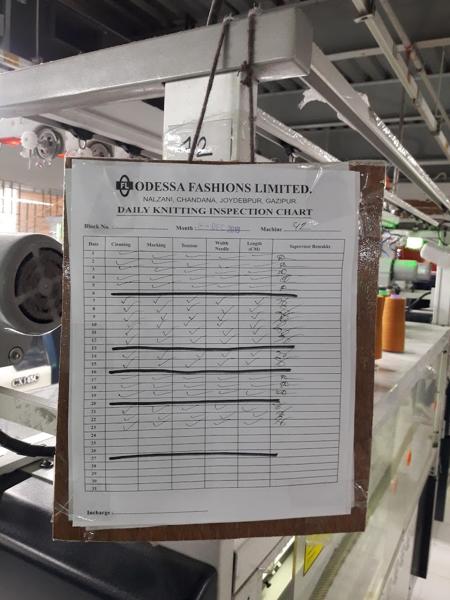 12
FL ODESSA FASHIONS LIMITED.
NALZANI, CHANDANA, JOYDEBPUR, GAZIPUR
DAILY KNITTING INSPECTION CHART
Block No. Month DEC 2019 Machine
Date Counting Marking Tension Width Needle Length (CM) Supervisor Remarks
1
2
3
4
5
6
7
8
9
10
11
12
13
14
15
16
17
18
19
20
21
22
23
24
25
26
27
28
29
30
31
Incharge